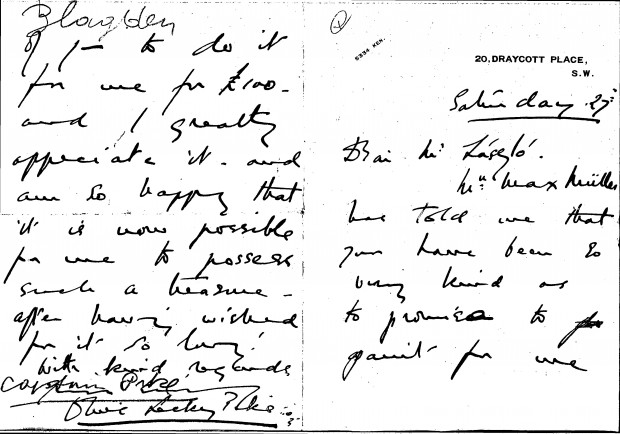 5334 KEN.
20, DRAYCOTT PLACE,
S.W.
Saturday 27
Dear Mr László.
Mrs Max Müller
has told me that
you have been so
very kind as
to promise to
paint for me
Blagden
of you to do it
for me for £100-
and I greatly
appreciate it - and
am so happy that
it is now possible
for me to possess
such a treasure -
after having wished
for it so long!
With kind regards
Captain Pike